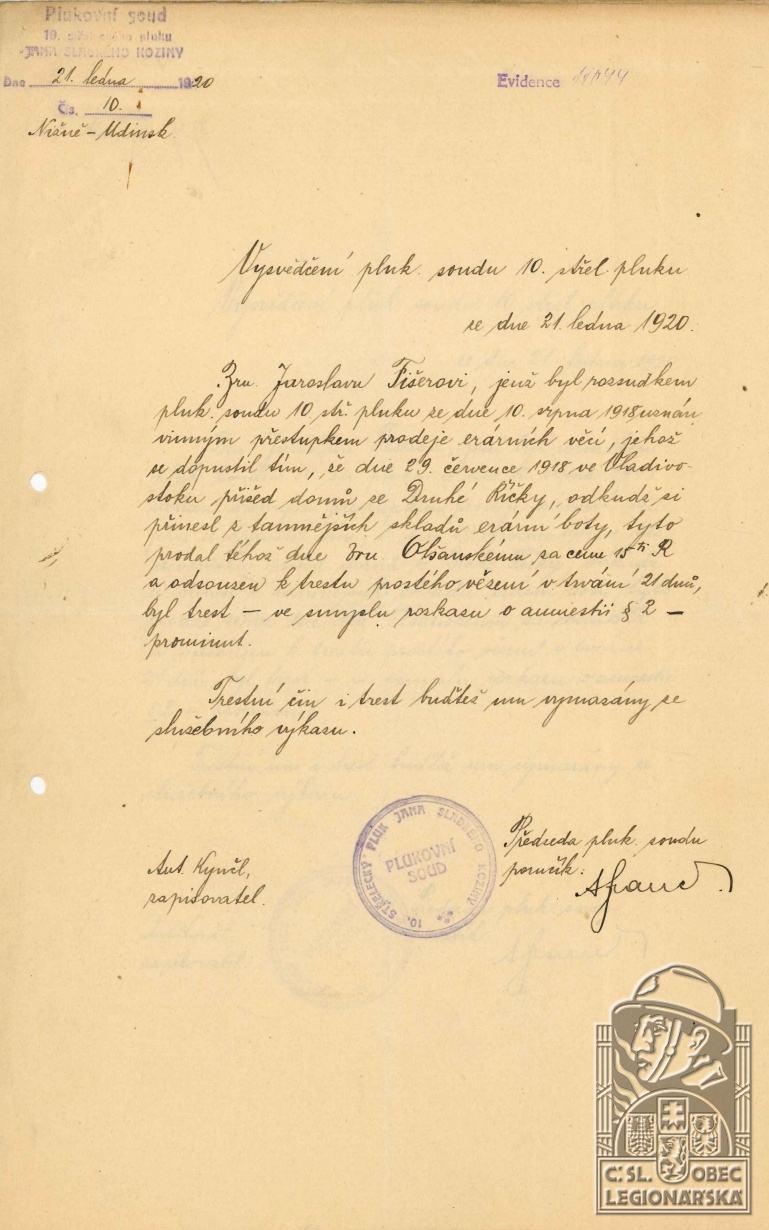 Plukovní soud
10. střeleckého pluku
JANA SLADKÉHO KOZINY
Dne 21. ledna 1920
Čís. 10.
Nižně-Udinsk.
Evidence
Vysvědčení pluk. soudu 10. střel. pluku
ze dne 21. ledna 1920.
Bru. Jaroslavu Fišerovi, jenž byl rozsudkem
pluk. soudu 10. stř. pluku ze dne 10. srpna 1918 uznán
vinným přestupkem prodeje erárních věcí, jehož
se dopustil tím, že dne 29. července 1918 ve Vladivo-
stoku přišed domů se Druhé Říčky, odkudž si
přinesl z tamnějších skladů erární boty, tyto
prodal téhož dne bru. Olšanskému za cenu 15ti R
a odsouzen k trestu prostého vězení v trvání 21 dnů,
byl trest – ve smyslu rozkazu o amnestii § 2 –
prominut.
Trestní čin i trest buďtež mu vymazány ze
služebního výkazu.
Ant. Kynčl,
zapisovatel.
10. STŘELECKÝ PLUK JANA SLADKÉHO KOZINY
PLUKOVNÍ
SOUD
Předseda pluk. soudu
poručík:
Č. SL. OBEC
LEGIONÁŘSKÁ